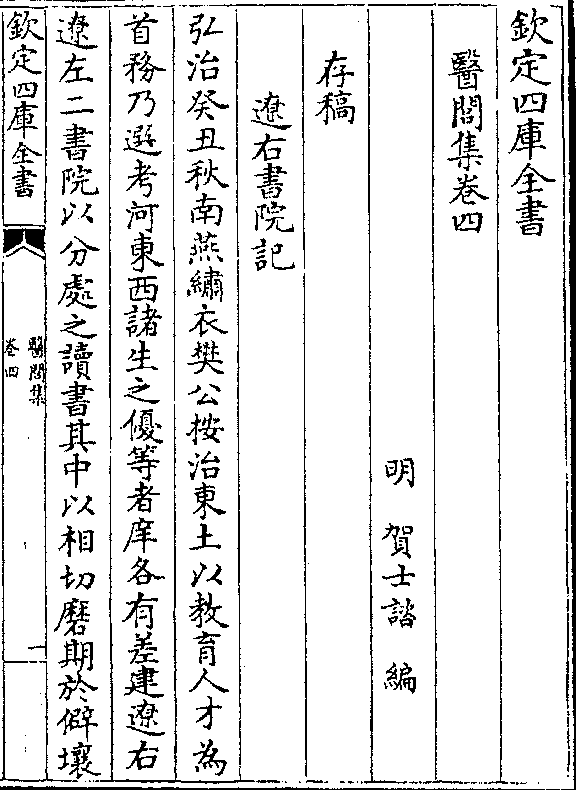 欽定四庫全書
醫閭集卷四
明 賀士諮 編
存稿
遼右書院記
弘治癸丑秋南燕繡衣樊公按治東土以教育人才為
首務乃選考河東西諸生之優等者庠各有差建遼右
遼左二書院以分處之讀書其中以相切磨期於僻壤
欽定四庫全書
醫閭集
卷四
一